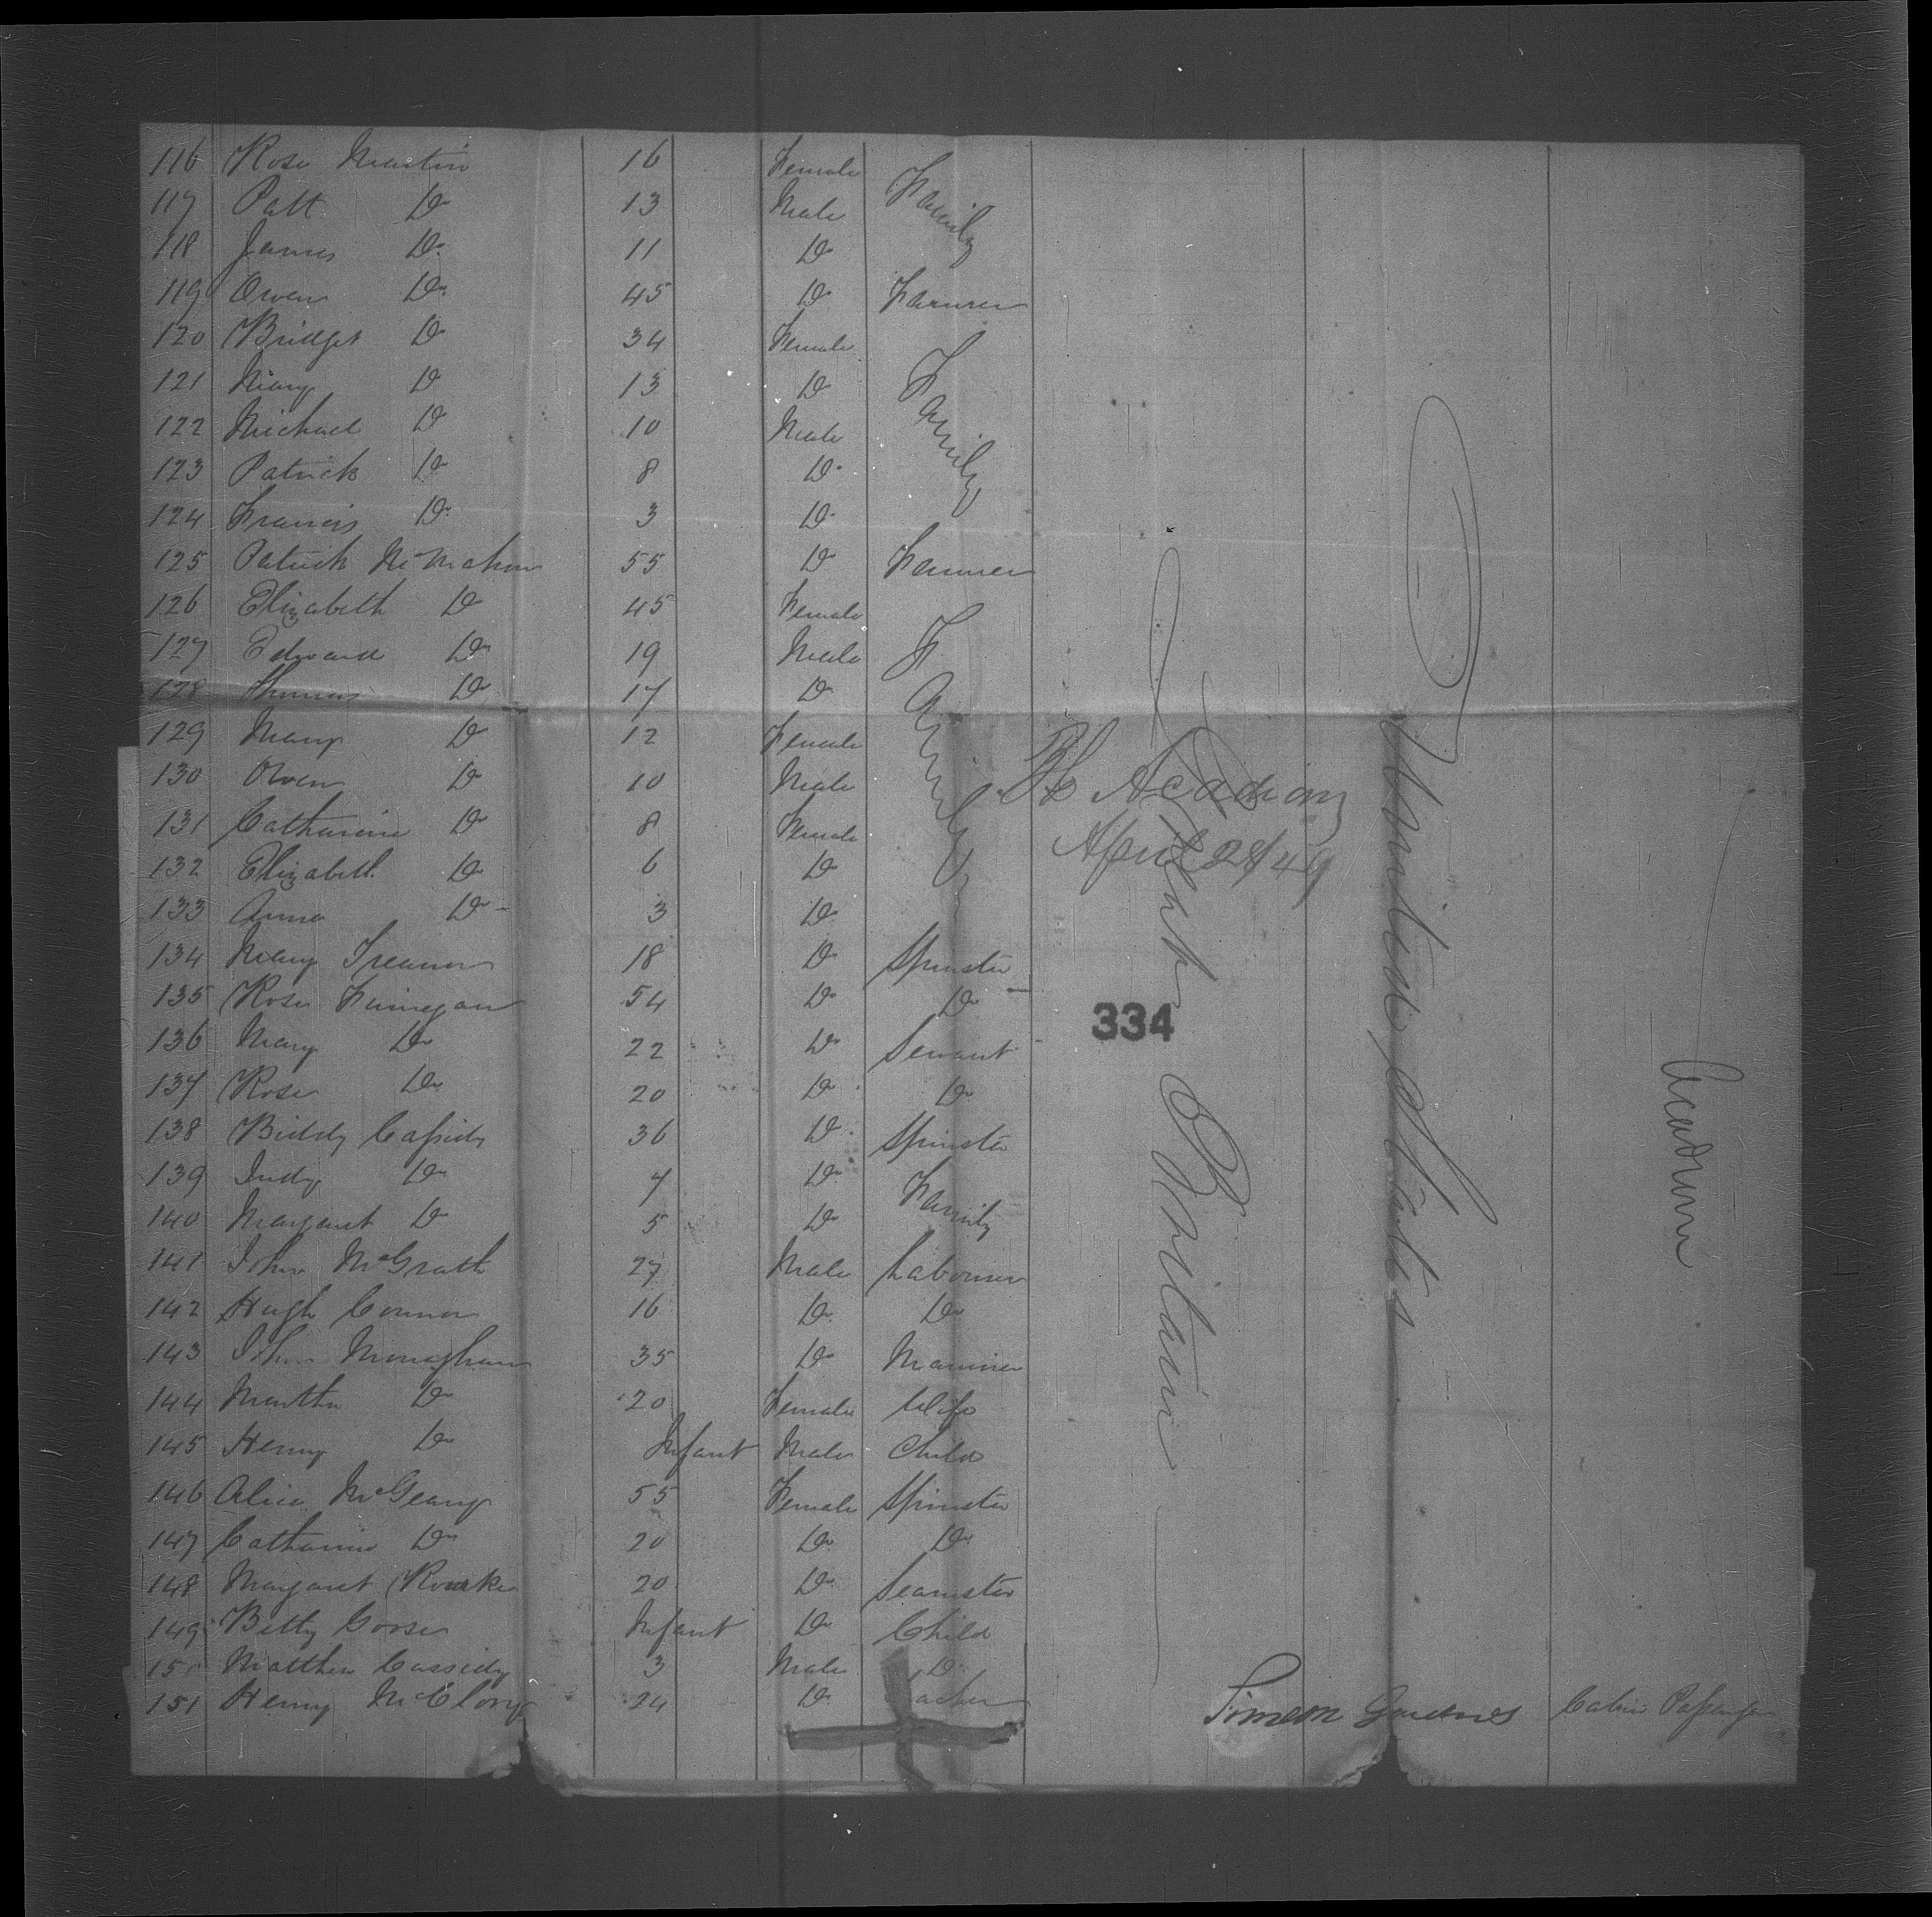 116 Rose Martin 16 Female
117 Patt Do 13 Male Family
118 James Do 11 Do
119 Owen Do 45 Do Farmer
120 Bridget Do 34 Female
121 Mary Do 13 Do Family
122 Michael Do 10 Male
123 Patrick Do 8 Do
124 Francis Do 3 Do
125 Patrick McMahon 55 Do Farmer
126 Elizabeth Do 45 Female
127 Edward Do 19 Male Family
128 Thomas Do 17 Do
129 Mary Do 12 Female
130 Owen Do 10 Male
131 Catharine Do 8 Female
132 Elizabeth Do 6 Do
133 Anna Do 3 Do
134 Mary Treanor 18 Do Spinster
135 Rose Finnegan 54 Do Do
136 Mary Do 22 Do Servant
137 Rose Do 20 Do Do
138 Biddy Cassidy 36 Do Spinster
139 Judy Do 7 Do Family
140 Margaret Do 5 Do
141 John McGrath 27 Male Labourer
142 Hugh Connor 16 Do Do
143 John Monaghan 35 Do Mariner
144 Martha Do 20 Female Wife
145 Henry Do Infant Male Child
146 Alice McGeany 55 Female Spinster
147 Catharine Do 20 Do Do
148 Margaret Rourke 20 Do Seamster
149 Betty Goose Infant Do Child
150 Matthew Cassidy 3 Male Do
151 Henry McClory 24 Do
Acadion
April 28/49
334
Great Britain
United States
Simeon Cabin Passenger